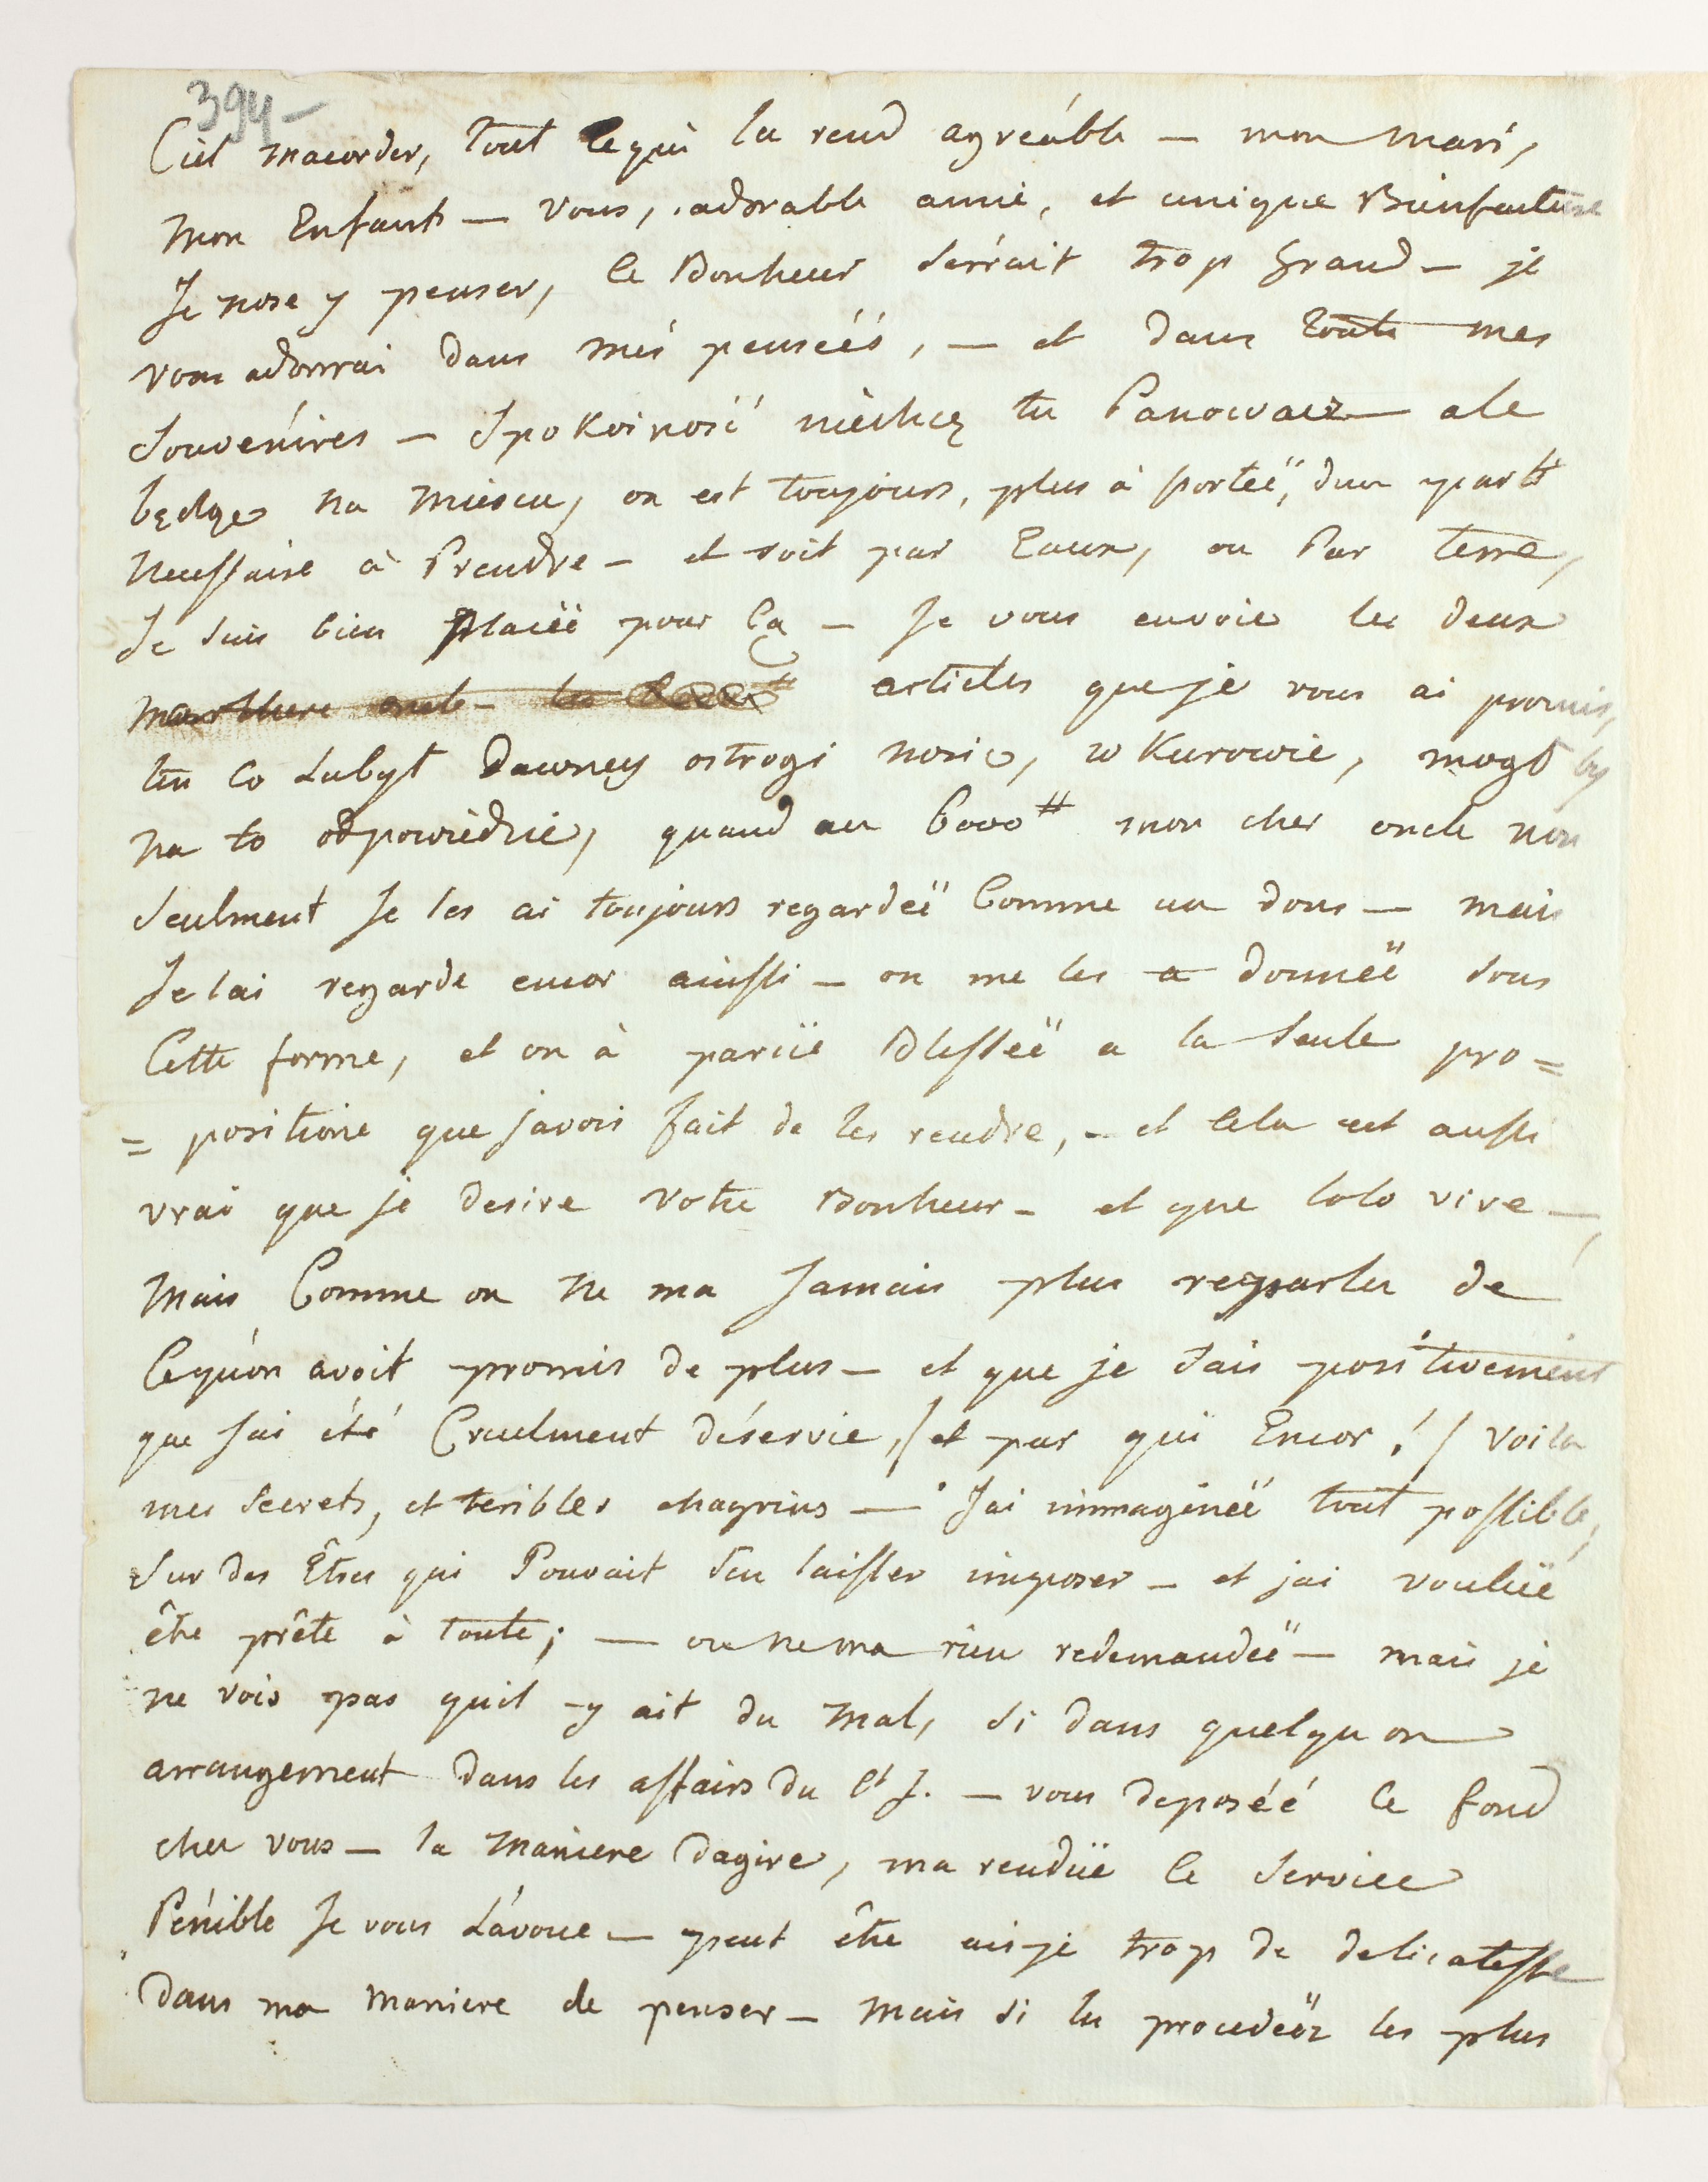 394-
Ciel macorder, tout ce qui la rend agreáble — mon mari,
mon Enfant — vous, adorable amie, et unique Bienfaitrice
Je nose y penser, le Bonheur serrait trop grand — je
vous adorrai dans més penséés, — et dans toute mes
souvenires — Spokoiność niechcę tu Panować — ale
będąc na miescu, on est toujours, plus à porteë, dun parti
necessaire à Prendre — et soit par Eaux, ou Par terre,
Je suis bien Placëë pour ça — Je vous envoie les deux
articles que je vous ai promis,
ten co Lubył Dawney ostrogi nosic, w Kurowie, mogł by
na to odpowiedzie, quand au 6000# mon cher oncle non
seulment Je les ai toujours regardeë Comme un dons — mais
Je lai regarde encor ainssi — on me les a donneë sous
Cette forme, et on à parüe Blesseë a la seule pro=
= positione que javois fait de les rendre, — et cela est aussi
vrai que je desire votre Bonheur — et que lolo vive —,
Mais Comme on ne ma Jamais plus reparler de
Cequ'on avoit promis de plus — et que je sais positivement
que Jai été Cruelment déservie, / et par qui Encor! / voila
mes secrets, et teribles chagrins — Jai immagineë tout possible,
sur des Êtres qui Pouvait sen laisser imposer — et jai voulüe
être prête à toute; — on ne ma rien redemandeë — mais je
ne vois pas quil y ait du mal, si dans quelqu on
arrangement dans les affairs du Ct J. — vous deposéé ce fond
chez vous — la maniere dagire, ma rendüe ce service
Pénible Je vous Lávoue — peut être ai je trop de delicatesse
Dans ma maniere de penser — mais si les procedeëz les plus